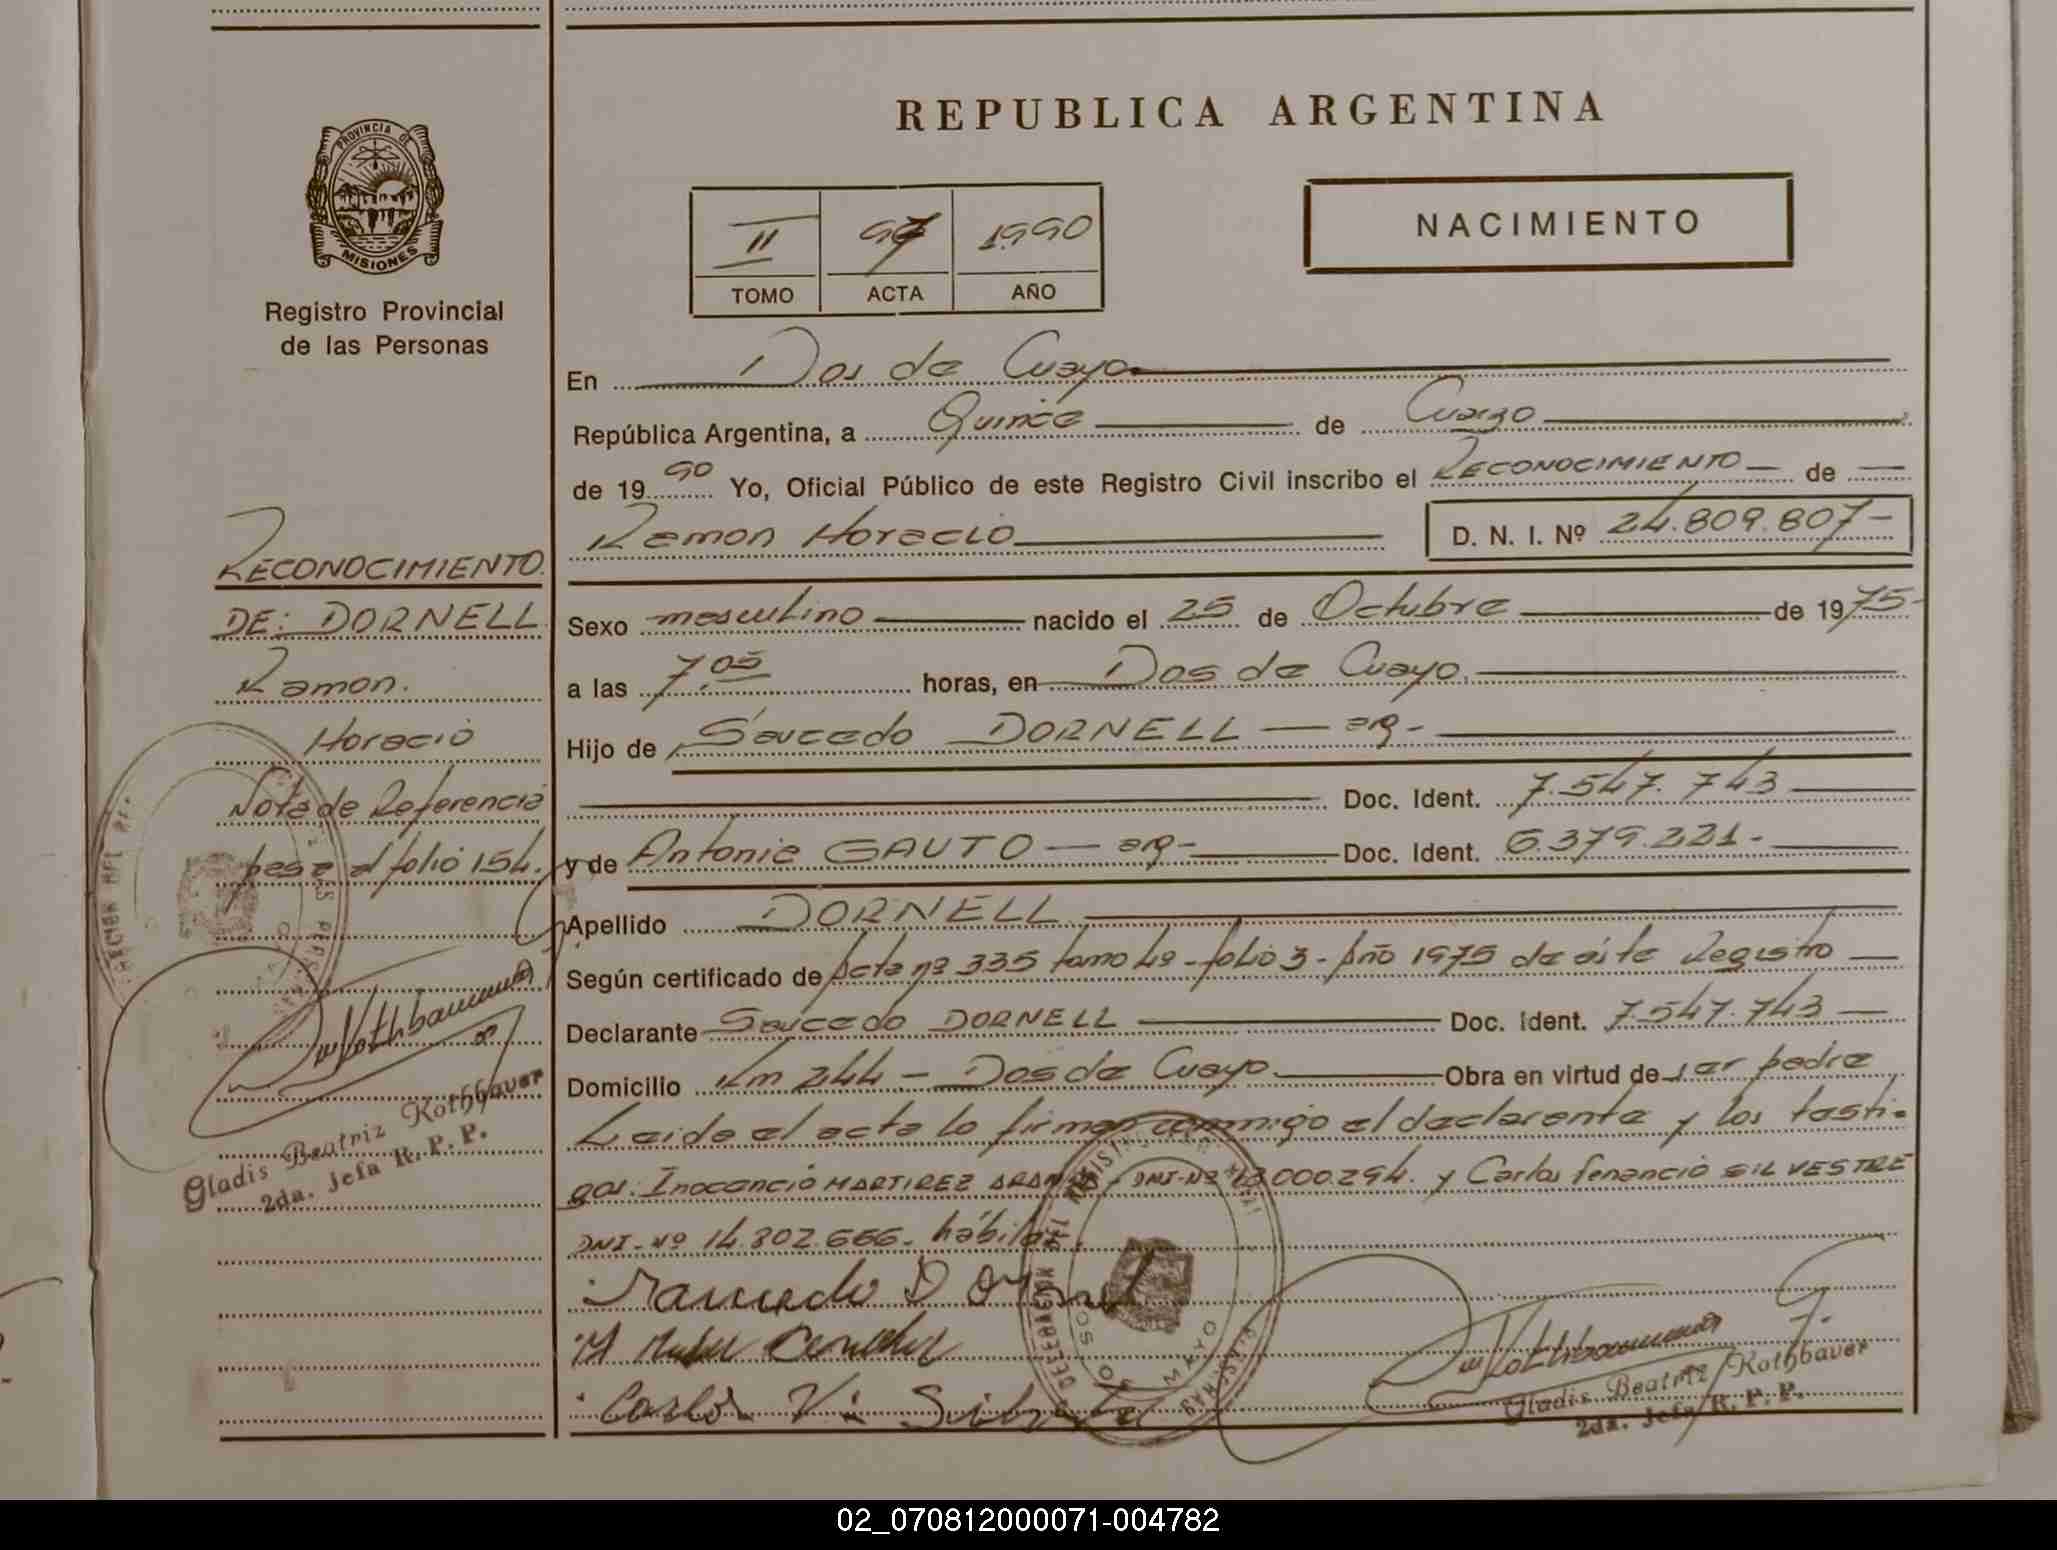 REPUBLICA ARGENTINA
PROVINCIA DE
MISIONES
Registro Provincial
de las Personas
II 1990
TOMO ACTA AÑO
NACIMIENTO
En Dos de Mayo
República Argentina, a Quince de Marzo
de 1990 Yo, Oficial Público de este Registro Civil inscribo el RECONOCIMIENTO de
Ramon Horacio D. N. I. Nº 24.809.807-
RECONOCIMIENTO
DE: DORNELL
Ramon.
Horacio
Nota de Referencia
pasa al folio 154.
Kothbauer
Gladis Beatriz Kothbauer
2da. Jefa R. P. P.
Sexo masculino nacido el 25 de Octubre de 1975-
a las 7,05 horas, en Dos de Mayo.
Hijo de Saucedo DORNELL - arg-
Doc. Ident. 7.547.743
y de Antonia GAUTO - arg- Doc. Ident. 6.379.221-
Apellido DORNELL
Según certificado de Acta nº 335 tomo 4º - folio 3 - Año 1975 de éste Registro
Declarante Saucedo DORNELL Doc. Ident. 7.547.743
Domicilio Km 244 - Dos de Mayo Obra en virtud de ser padre
Leida el acta lo firman conmigo el declarante y los testi-
gos: Inocencio MARTIREZ DNI-Nº 000.294. y Carlos Venancio SILVESTRE
DNI-Nº 14.802.666- hábiles.
Saucedo Dornel
Carlos Vi
DOS DE MAYO
Kothbauer
Gladis Beatriz Kothbauer
2da. Jefa R. P. P.
02_070812000071-004782